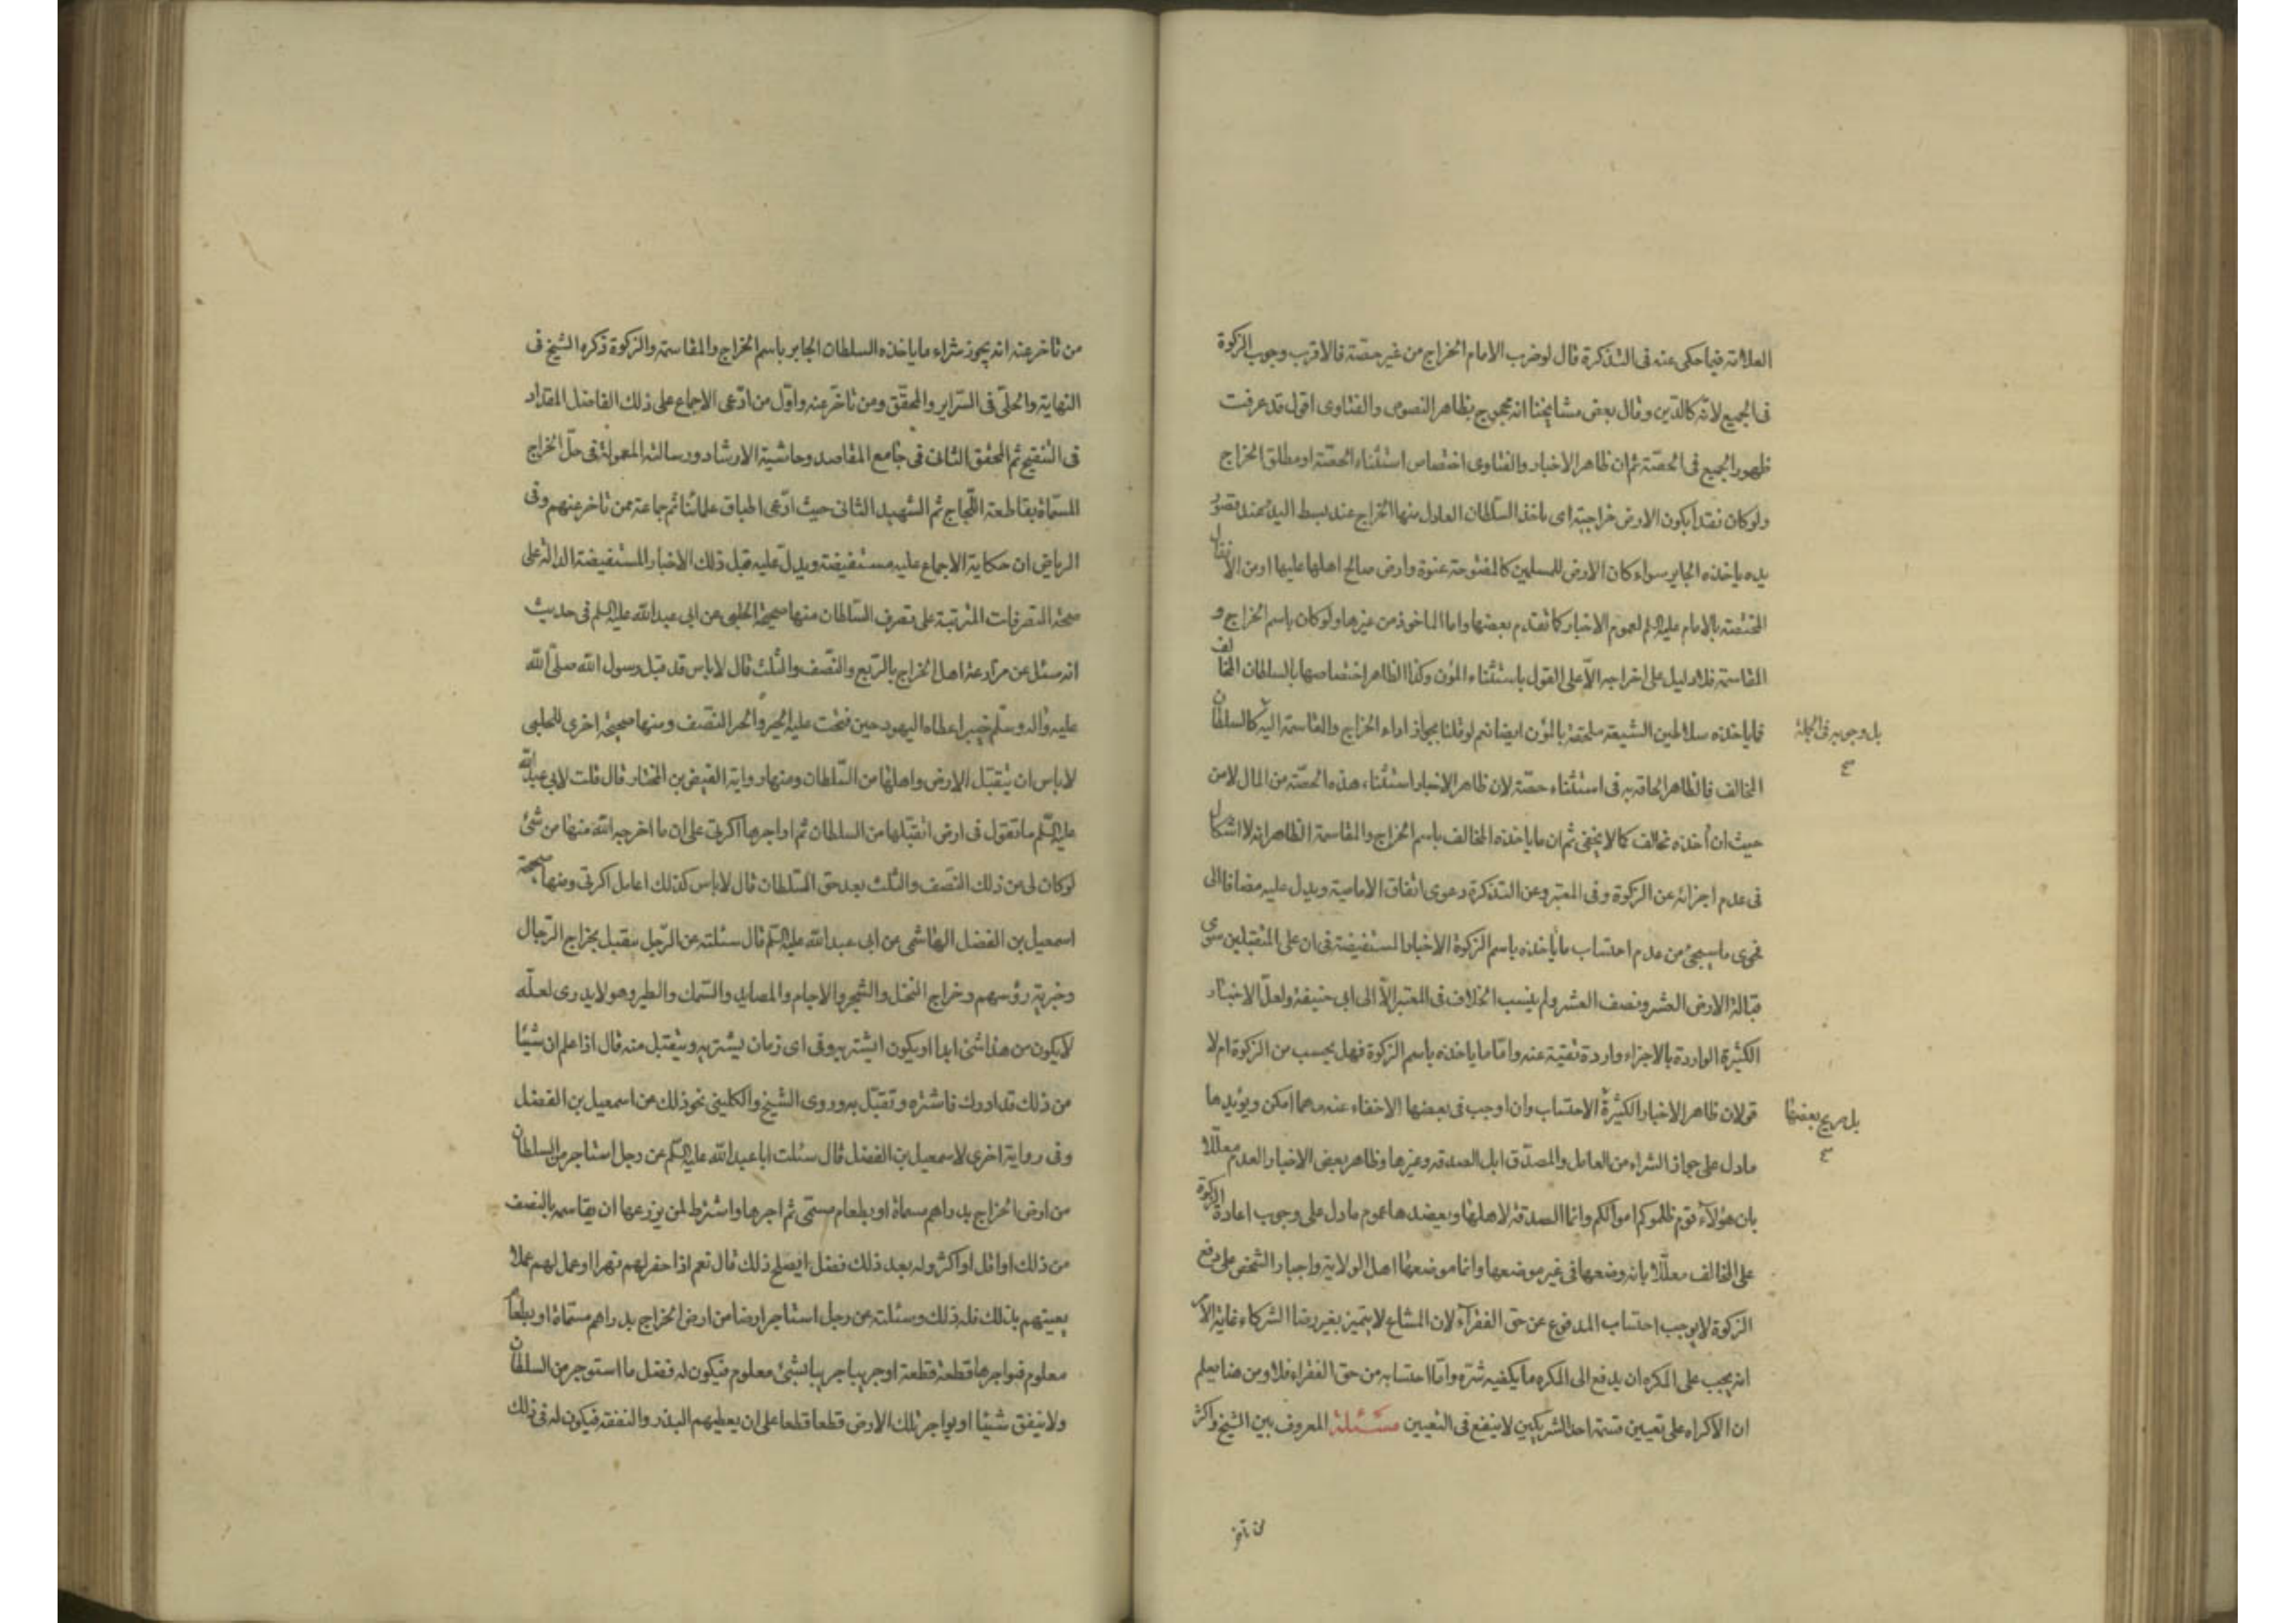 العلامة فيما حكى عنه فى التذكرة قال لو ضرب الامام الخراج من غير حصّة فالاقرب وجوب الزكوة
فى الجميع لانّه كالدّين وقال بعض مشايخنا انه محجوج بظاهر النصوص والفتاوى اقول قد عرفت
ظهور الجميع فى الحصّة ثم ان ظاهر الاخبار والفتاوى اختصاص استثناء الحصّة او مطلق الخراج
ولو كان نقدا بكون الارض خراجيّة اى ياخذ السّلطان العادل منها الخراج عند بسط اليد عند قصور
يده ياخذه الجاير سواء كان الارض للمسلمين كالمفتوحة عنوة وارض صالح اهلها عليها او من الانفال
المختصّة بالامام عليه السلم لعموم الاخبار كما تقدم بعضها واما الماخوذ من غيرها ولو كان باسم الخراج و
المقاسمة فلا دليل على اخراجه الّا على القول باستثناء المؤن وكذا الظاهر اختصاصها بالسلطان المخالف
فما ياخذه سلاطين الشيعة ملحقة بالمؤن ايضا نعم لو قلنا بجواز اداء الخراج والمقاسمة اليه كالسلطان
بل وجوبه فى الجملة
المخالف فالظاهر الحاقه به فى استثناء حصّة لان ظاهر الاخبار استثناء هذه الحصّة من المال لا من
حيث ان اخذه مخالف كما لا يخفى ثم ان ما ياخذه المخالف باسم الخراج والمقاسمة الظاهر انه لا اشكال
فى عدم اجزائه عن الزكوة وفى المعتبر وعن التذكرة دعوى اتفاق الامامية ويدل عليه مضافا الى
فحوى ما سيجئ من عدم احتساب ما ياخذه باسم الزكوة الاخبار المستفيضة فى ان على المتقبلين سوى
قبالة الارض العشر ونصف العشر ولم ينسب الخلاف فى المعتبر الّا الى ابى حنيفة ولعلّ الاخبار
الكثيرة الواردة بالاجزاء واردة تقية عنه وامّا ما ياخذه باسم الزكوة فهل يحسب من الزكوة ام لا
قولان ظاهر الاخبار الكثيرة الاحتساب وان اوجب فى بعضها الاخفاء عنه مهما امكن ويؤيدها
بل صريح بعضها
مادل على جواز الشراء من العامل والمصدّق ابل الصدقة وغيرها وظاهر بعض الاخبار العدم معلّلا
بان هؤلآء قوم ظلموكم اموالكم وانما الصدقة لاهلها ويعضدها عموم مادل على وجوب اعادة الزكوة
على المخالف معلّلا بانه وضعها فى غير موضعها وانما موضعها اهل الولاية واجبار الشخص على دفع
الزكوة لا يوجب احتساب المدفوع عن حق الفقرآء لان المشاع لا يتميز بغير رضا الشركاء غاية الامر
انه يجب على المكره ان يدفع الى المكره ما يكفيه شرّه وامّا احتسابه من حق الفقراء فلا ومن هنا يعلم
ان الاكراه على تعيين قسمة احد الشريكين لا ينفع فى التعيين مسئلة المعروف بين الشيخ واكثر
من تاخر
من تاخر عنه انه يجوز شراء ما ياخذه السلطان الجاير باسم الخراج والمقاسمة والزكوة ذكره الشيخ فى
النهاية والحلّى فى السّراير والمحقّق ومن تاخّر عنه واوّل من ادّعى الاجماع على ذلك الفاضل المقداد
فى التنقيح ثم المحقق الثانى فى جامع المقاصد وحاشية الارشاد ورسالته المعمولة فى حلّ الخراج
المسمّاة بقاطعة اللّجاج ثم الشهيد الثانى حيث ادّعى اطباق علمائنا ثم جماعة ممن تاخر عنهم وفى
الرياض ان حكاية الاجماع عليه مستفيضة ويدلّ عليه قبل ذلك الاخبار المستفيضة الدالة على
صحة التصرفات المترتبة على تصرف السّلطان منها صحيحة الحلبى عن ابى عبد الله عليه السلم فى حديث
انه سئل عن مزارعة اهل الخراج بالرّبع والنّصف والثلث قال لا باس قد قبل رسول الله صلّى الله
عليه واله وسلّم خيبر اعطاه اليهود حين فتحت عليه الخبر والخبر النّصف ومنها صحيحة اخرى للحلبى
لا باس ان يتقبّل الارض واهلها من السّلطان ومنها رواية الفيض بن المختار قال قلت لابى عبد الله
عليه السّلم ما تقول فى ارض اتقبّلها من السلطان ثم اواجرها اكرتى على ان ما اخرج الله منها من شئ
لو كان لى من ذلك النصف والثلث بعد حق السّلطان قال لا باس كذلك اعامل اكرتى ومنها صحيحة
اسمعيل بن الفضل الهاشمى عن ابى عبد الله عليه السّلم قال سئلته عن الرّجل يتقبل بخراج الرّجال
وجزية رؤسهم وخراج النخل والشجر والاجام والمصايد والسّمك والطير وهو لا يدرى لعلّه
لا يكون من هذا شئ ابدا او يكون ايشتريه وفى اى زمان يشتريه ويتقبل منه قال اذا علم ان شيئا
من ذلك قد ادرك فاشتره وتقبّل به وروى الشيخ والكلينى نحو ذلك عن اسمعيل بن الفضل
وفى رواية اخرى لاسمعيل بن الفضل قال سئلت ابا عبد الله عليه السّلم عن رجل استاجر من السلطان
من ارض الخراج بدراهم مسماة او بطعام مسمّى ثم اجرها واشترط لمن يزرعها ان يقاسمه بالنصف
من ذلك او اقل او اكثر وله بعد ذلك فضل ايصلح ذلك قال نعم اذا حفر لهم نهرا او عمل لهم عملا
يعينهم بذلك فله ذلك وسئلته عن رجل استاجر ارضا من ارض الخراج بدراهم مسمّاة او بطعام
معلوم فيواجرها قطعة قطعة او جريبا جريبا بشئ معلوم فيكون له فضل ما استوجر من السلطان
ولا ينفق شيئا او يواجر تلك الارض قطعا قطعا على ان يعطيهم البذر والنفقة فيكون له فى ذلك